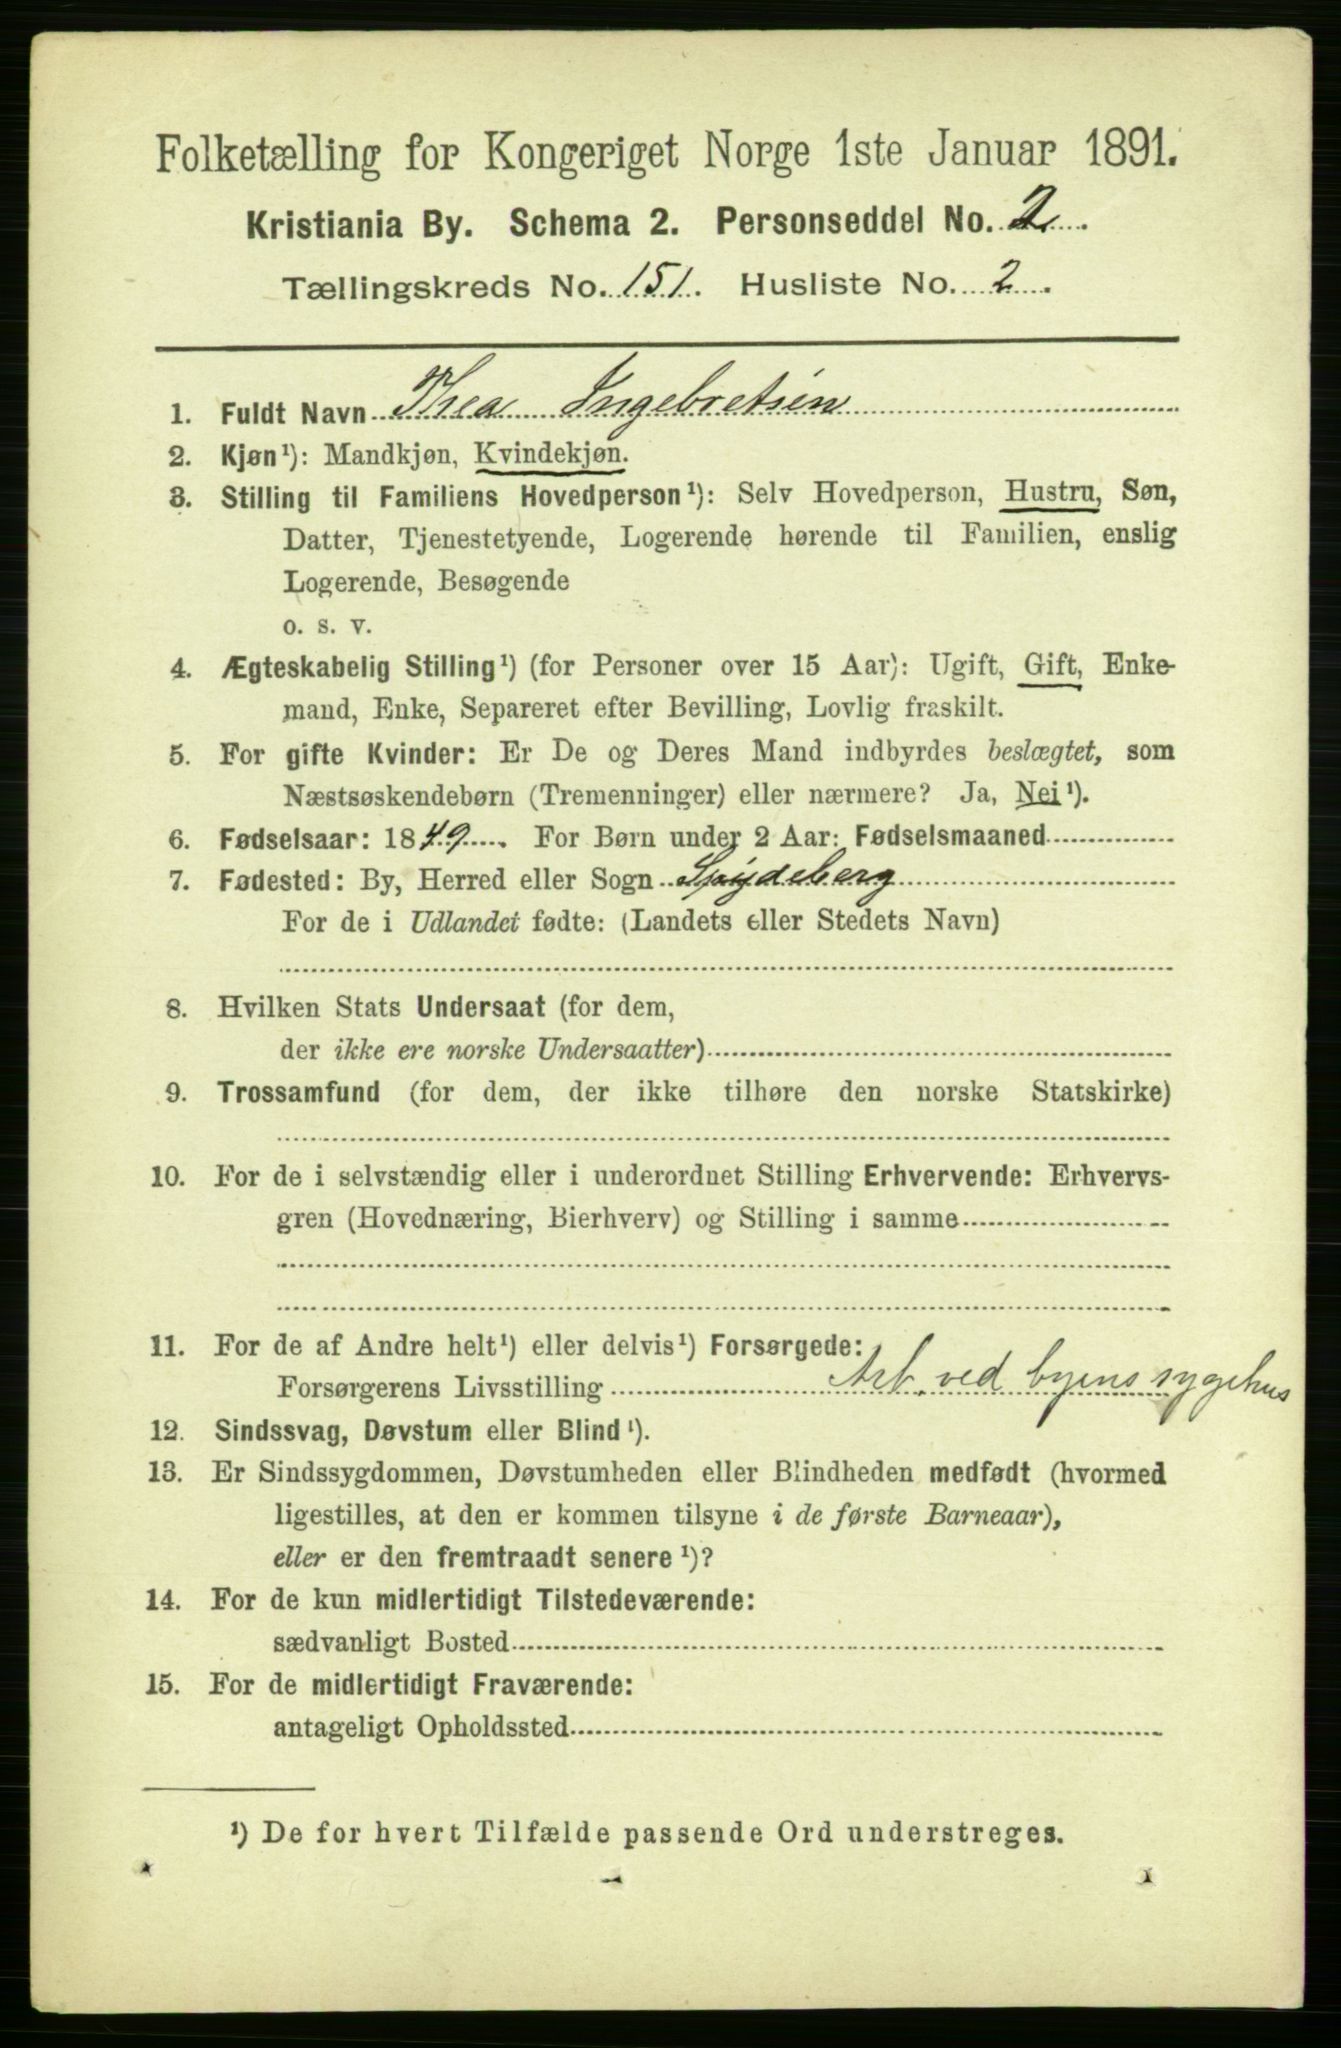 Folketælling for Kongeriget Norge 1ste Januar 1891.
Kristiania By. Schema 2. Personseddel No. 2.
Tællingskreds No. 151. Husliste No. 2.
1. Fuldt Navn Thea Ingebretsen
2. Kjøn¹): Mandkjøn, Kvindekjøn.
3. Stilling til Familiens Hovedperson¹): Selv Hovedperson, Hustru, Søn,
Datter, Tjenestetyende, Logerende hørende til Familien, enslig
Logerende, Besøgende
o. s. v.
4. Ægteskabelig Stilling¹) (for Personer over 15 Aar): Ugift, Gift, Enke-
mand, Enke, Separeret efter Bevilling, Lovlig fraskilt.
5. For gifte Kvinder: Er De og Deres Mand indbyrdes beslægtet, som
Næstsøskendebørn (Tremenninger) eller nærmere? Ja, Nei¹).
6. Fødselsaar: 1849. For Børn under 2 Aar: Fødselsmaaned
7. Fødested: By, Herred eller Sogn Spydeberg
For de i Udlandet fødte: (Landets eller Stedets Navn)
8. Hvilken Stats Undersaat (for dem,
der ikke ere norske Undersaatter)
9. Trossamfund (for dem, der ikke tilhøre den norske Statskirke)
10. For de i selvstændig eller i underordnet Stilling Erhvervende: Erhvervs-
gren (Hovednæring, Bierhverv) og Stilling i samme
11. For de af Andre helt¹) eller delvis¹) Forsørgede:
Forsørgerens Livsstilling Arb. ved byens sygehus
12. Sindssvag, Døvstum eller Blind¹).
13. Er Sindssygdommen, Døvstumheden eller Blindheden medfødt (hvormed
ligestilles, at den er kommen tilsyne i de første Barneaar),
eller er den fremtraadt senere¹)?
14. For de kun midlertidigt Tilstedeværende:
sædvanligt Bosted
15. For de midlertidigt Fraværende:
antageligt Opholdssted
¹) De for hvert Tilfælde passende Ord understreges.